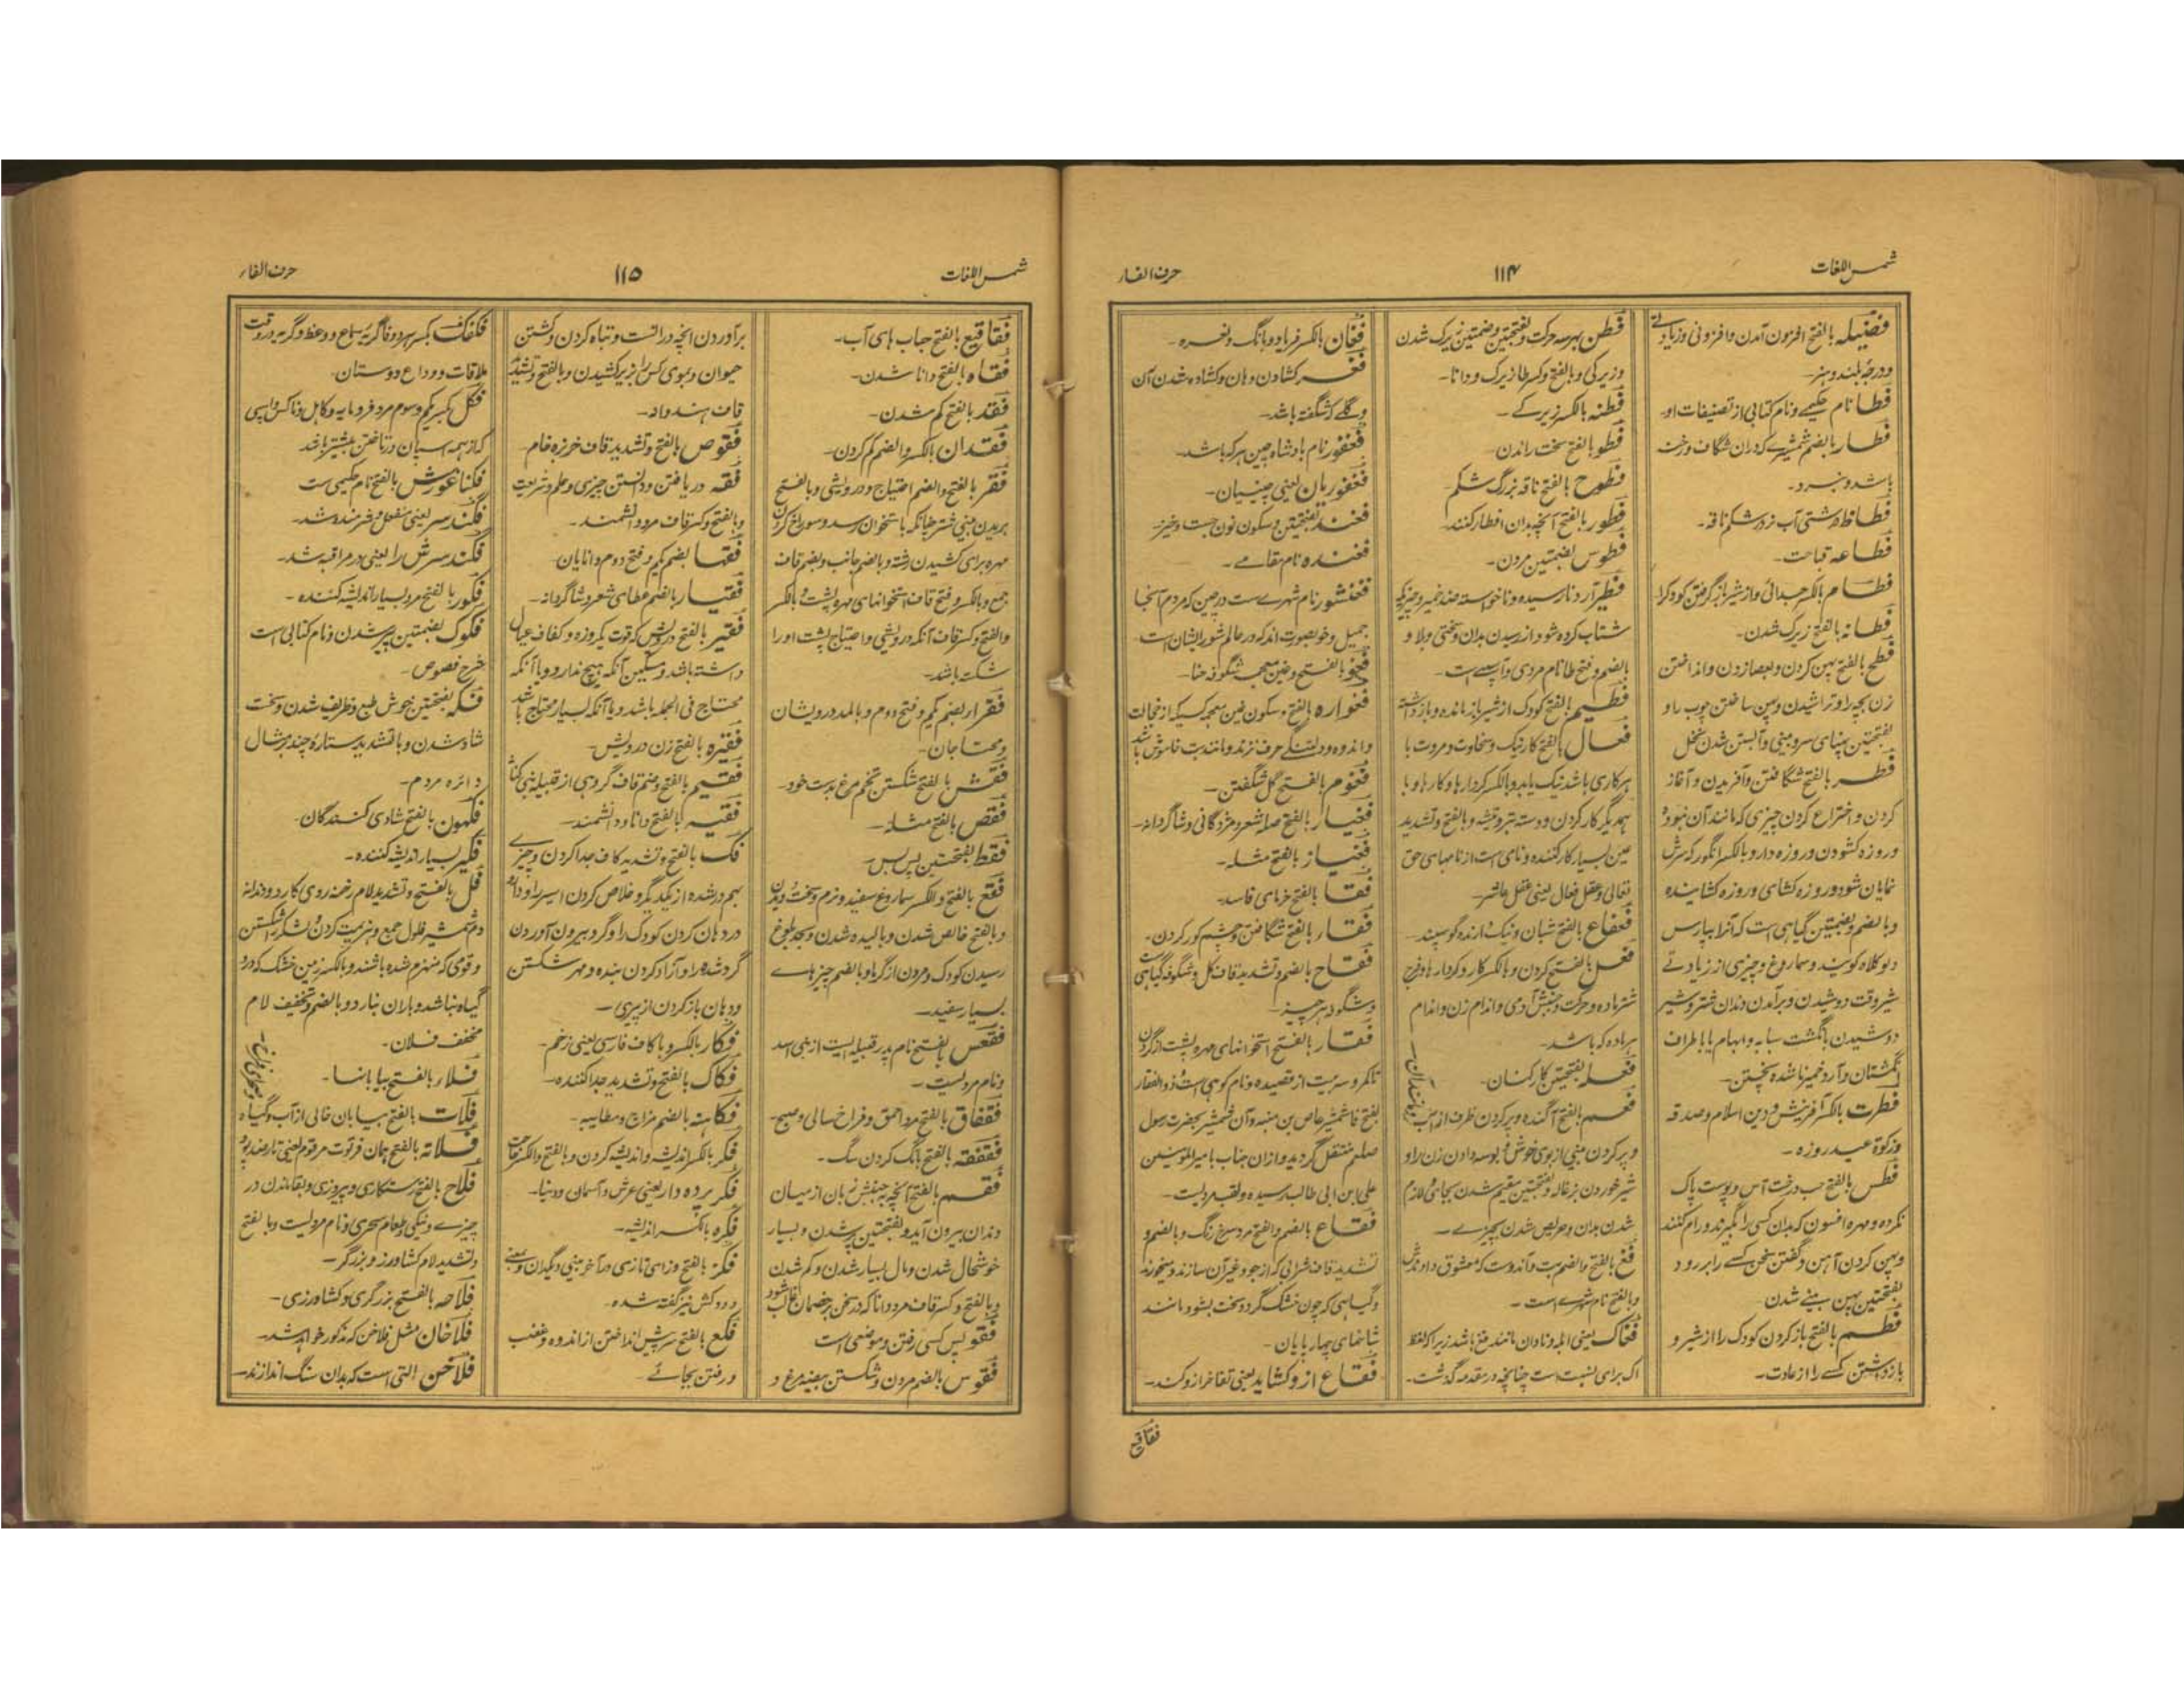 شمس اللغات
۱۱۴
حرف الفاء
فضیله بالفتح افزون آمدن و افزونی و زیادتی
و درجهٔ بلند و هنر۔
فطا نام حکیمے و نام کتابی از تصنیفات او۔
فطار بالضم شمشیرے که دران شگاف و رخنه
باشد و نبرد۔
فطاظ درشتی آب نزد شکم ناقه۔
فطاعه قباحت۔
فطام بالکسر جدائی و از شیر باز گرفتن کودک را
فطانه بالفتح زیرک شدن۔
فطح بالفتح پهن کردن و بعصا زدن و انداختن
زن بچه را و تراشیدن و پهن ساختن چوب را و
بفتحتین پهنای سر و بینی و آبستن شدن نخل
فطر بالفتح شگافتن و آفریدن و آغاز
کردن و اختراع کردن چیزی که مانند آن نبود و
روزه کشودن و روزه دار و بالکسر انگور که سرش
نمایان شود و روزه کشای و روزه کشاینده
و بالضم و بضمتین گیاهی است که آنرا بپارس
دیو کلاه گویند و سماروغ و چیزی از زیادتے
شیر وقت دوشیدن و برآمدن دندان شتر و شیر
دوشیدن بانگشت سبابه و ابهام یا باطراف
انگشتان و آرد خمیر ناشده پختن۔
فطرت بالکسر آفرینش و دین اسلام و صدقه
و زکوة عید روزه۔
فطس بالفتح حب درخت آس و پوست پاک
نکرده و مهره افسون که بدان کسی را بگیرند و رام کنند
و پهن کردن آهن و گفتن سخن کسے را بر رو و
بفتحتین پهن بینے شدن
فطم بالفتح باز کردن کودک را از شیر و
باز داشتن کسے را از عادت۔
فطن بهر سه حرکت و بفتحتین و ضمتین زیرک شدن
و زیرکی و بالفتح و کسر طا زیرک و دانا۔
فطنه بالکسر زیرکے۔
فطو بالفتح سخت راندن
فطوح بالفتح ناقه بزرگ شکم
فطور بالفتح آنچه بدان افطار کنند۔
فطوس بضمتین مردن۔
فطیر آرد نارسیده و ناخواسته ضد خمیر و چیزیکه
شتاب کرده شود از رسیدن بدان و سختی و بلا و
بالضم و فتح طا نام مردی و آبیست۔
فطیم بالفتح کودک از شیر باز مانده و باز داشته
فعال بالفتح کار نیک و سخاوت و مروت با
هر کاری باشد نیک یا بد و بالکسر کردار ها و کار ها و با
یکدیگر کار کردن و دسته تبر و تیشه و بالفتح و تشدید
عین بسیار کار کننده و نامی است از نامهای حق
تعالی و عقل فعال یعنی عقل عاشر۔
فعفاع بالفتح شبان و نیک راننده گوسپند۔
فعل بالفتح کردن و بالکسر کار و کردار و فرج
شتر ماده و حرکت و جنبش آدمی و اندام زن و اندام
هر ماده که باشد۔
فعله بفتحتین کارکنان۔
فعم بالفتح آگنده و پر کردن ظرف از آب و مانند آن
و پر کردن بینی از بوی خوش و بوسه دادن زن را و
شیر خوردن بزغاله و بفتحتین مقیم شدن بجای و لازم
شدن بدان و حریص شدن بچیزے۔
فغ بالفتح و الضم بت و آندوست که معشوق دارندش
و بالفتح نام شهرے است۔
فغاک یعنی ابله و نادان مانند فغ باشد زیرا که لفظ
اک برای نسبت است چنانچه در مقدمه گذشت۔
فغان بالکسر فریاد و بانگ و نعره۔
فغر کشادن دهان و کشاده شدن آن
و گلے که شگفته باشد۔
فغفور نام بادشاه چین هر که باشد۔
فغفوریان یعنی چینیان۔
فغند بفتحتین و سکون نون جست و خیز۔
فغنده نام مقامے۔
فغنشور نام شهرے ست در چین که مردم آنجا
جمیل و خوبصورت اند که در عالم شور ایشان است۔
فغو بالفتح و غین معجمه شگوفه حنا۔
فغواره بالفتح و سکون غین معجمه کسیکه از خجالت
و اندوه و دلتنگے حرف نزند و مانند بت خاموش باشد
فغوم بالفتح گل شگفتن۔
فغیار بالفتح صله شعر و مژدگانی و شاگردانه۔
فغیاز بالفتح مثله۔
فقا بالفتح خرمای فاسد۔
فقاء بالفتح شگافتن و چشم کور کردن۔
فقاح بالضم و تشدید قاف گل و شگوفه گیاهی است
و شگوفه هر چیز۔
فقار بالفتح استخوانهای مهره پشت از گردن
تا کمر و سر بیت از قصیده و نام کوهی است و ذو الفقار
بفتح فا شمشیر عاص بن منبه و آن شمشیر بحضرت رسول
صلعم منتقل گردید و ازان جناب بامیر المؤمنین
علی ابن ابی طالب رسیده و لقب مردیست۔
فقاع بالضم و الفتح مرد سرخ رنگ و بالضم و
تشدید قاف شرابی که از جو و غیر آن سازند و میخورند
و گیاهی که چون خشک گردد سخت بشود مانند
شاخهای چهار پایان۔
فقاع از و کشاید یعنی تفاخر از و کند۔
فقاقیع
شمس اللغات
۱۱۵
حرف الفاء
فقاقیع بالفتح حباب های آب۔
فقاه بالفتح دانا شدن۔
فقد بالفتح گم شدن۔
فقدان بالکسر و الضم گم کردن۔
فقر بالفتح و الضم احتیاج و درویشی و بالفتح
بریدن بینی شتر چنانکه باستخوان رسد و سوراخ کردن
مهره برای کشیدن رشته و بالضم جانب و بضم قاف
جمع و بالکسر و فتح قاف استخوانهای مهره پشت و بالکسر
و الفتح و کسر قاف آنکه درویشی و احتیاج پشت او را
شکسته باشد۔
فقراء بضم یکم و فتح دوم و بالمد درویشان
و محتاجان۔
فقش بالفتح شکستن تخم مرغ بدست خود۔
فقص بالفتح مثله۔
فقط بفتحتین پس بس۔
فقع بالفتح و الکسر سماروغ سفید و نرم و سخت دویدن
و بالفتح خالص شدن و بالیده شدن و بحد بلوغ
رسیدن کودک و مردن از گرما و بالضم چیزهاے
بسیار سفید۔
فقعس بالفتح نام پدر قبیله ایست از بنی اسد
و نام مردیست۔
فقفاق بالفتح مرد احمق و فراخ سالی و صبح۔
فقفقه بالفتح بانگ کردن سگ۔
فقم بالفتح آنچه به جنبش زبان از میان
دندان بیرون آید و بفتحتین پر شدن و بسیار
خوشحال شدن و مال بسیار شدن و کم شدن
و بالفتح و کسر قاف مرد دانا که در سخن بر خصمان غالب شود
فقو پس کسی رفتن و موضعی است
فقوس بالضم مردن و شکستن بیضه مرغ و
برآوردن آنچه در است و تباه کردن و کشتن
حیوان و بموی کس را زیر کشیدن و بالفتح و تشدید
قاف هندوانه۔
فقوص بالفتح و تشدید قاف خربزه خام۔
فقه دریافتن و دانستن چیزی و علم شریعت
و بالفتح و کسر قاف مرد دانشمند۔
فقها بضم یکم و فتح دوم دانایان
فقیار بالضم عطای شعر و شاگردانه۔
فقیر بالفتح درویش که قوت یکروزه و کفاف عیال
داشته باشد و مسکین آنکه هیچ ندارد و یا آنکه
محتاج فی الجمله باشد و یا آنکه بسیار محتاج باشد
فقیره بالفتح زن درویش۔
فقیم بالفتح و ضم قاف گروهی از قبیله بنی کنانه
فقیه بالفتح دانا و دانشمند۔
فک بالفتح و تشدید کاف جدا کردن و چیزے
بهم در شده از یکدیگر و خلاص کردن اسیر را و دارو
در دهان کردن کودک را و گرو بیرون آوردن
گرد شده را و آزاد کردن بنده و مهر شکستن
و دهان باز کردن از پیری۔
فکار بالکسر و با کاف فارسی یعنی زخم۔
فکاک بالفتح و تشدید جدا کننده۔
فکاهته بالضم مزاح و مطایبه۔
فکر بالکسر اندیشه و اندیشه کردن و بالفتح و الکسر حاجت
فکر پرده دار یعنی عرش و آسمان و دنیا۔
فکره بالکسر اندیشه۔
فکز بالفتح و زای تازی در آخر بینی و دیگدان و بمعنی
دودکش نیز گفته شده۔
فکع بالفتح سر پیش انداختن از اندوه و غضب
و رفتن بجائے۔
فکفک بکسر هر دو فا گریه سماع و وعظ و گریه در وقت
ملاقات و وداع دوستان۔
فکل بکسر یکم و سوم مرد فرومایه و کاهل و ناکس و اسپی
که از همه اسپان در تاختن پیشتر باشد
فکناغورش بالفتح نام حکیمی است
فگند سر یعنی منفعل و شرمنده شد۔
فگند سرش را یعنی در مراقبه شد۔
فکور بالفتح مرد بسیار اندیشه کننده۔
فکوک بضمتین پیر شدن و نام کتابی است
شرح فصوص۔
فکه بفتحتین خوش طبع و ظریف شدن و سخت
شاد شدن و با تشدید ستارهٔ چند بر مثال
دائره مردم۔
فکهون بالفتح شادی کنندگان۔
فکیر بسیار اندیشه کننده۔
فل بالفتح و تشدید لام رخنه روی کارد و دندانه
دم شمشیر فلول جمع و هزیمت کردن لشکر و شکستن
و قومی که منهزم شده باشند و بالکسر زمین خشک که درو
گیاه نباشد و باران نبارد و بالضم و تخفیف لام
مخفف فلان۔
فلاء بالفتح بیابانها۔
فلات بالفتح بیابان خالی از آب و گیاه و صحرای فراخ۔
فلاته بالفتح همان فرتوت مرقوم یعنی تار ضد پود
فلاح بالفتح رستگاری و پیروزی و بقا ماندن در
چیزے و نیکی و طعام سحری و نام مردیست و با فتح
و تشدید لام کشاورز و بزرگر۔
فلاحه بالفتح بزرگری و کشاورزی۔
فلاخان مثل فلاخن که مذکور خواهد شد۔
فلاخن التی است که بدان سنگ اندازند۔